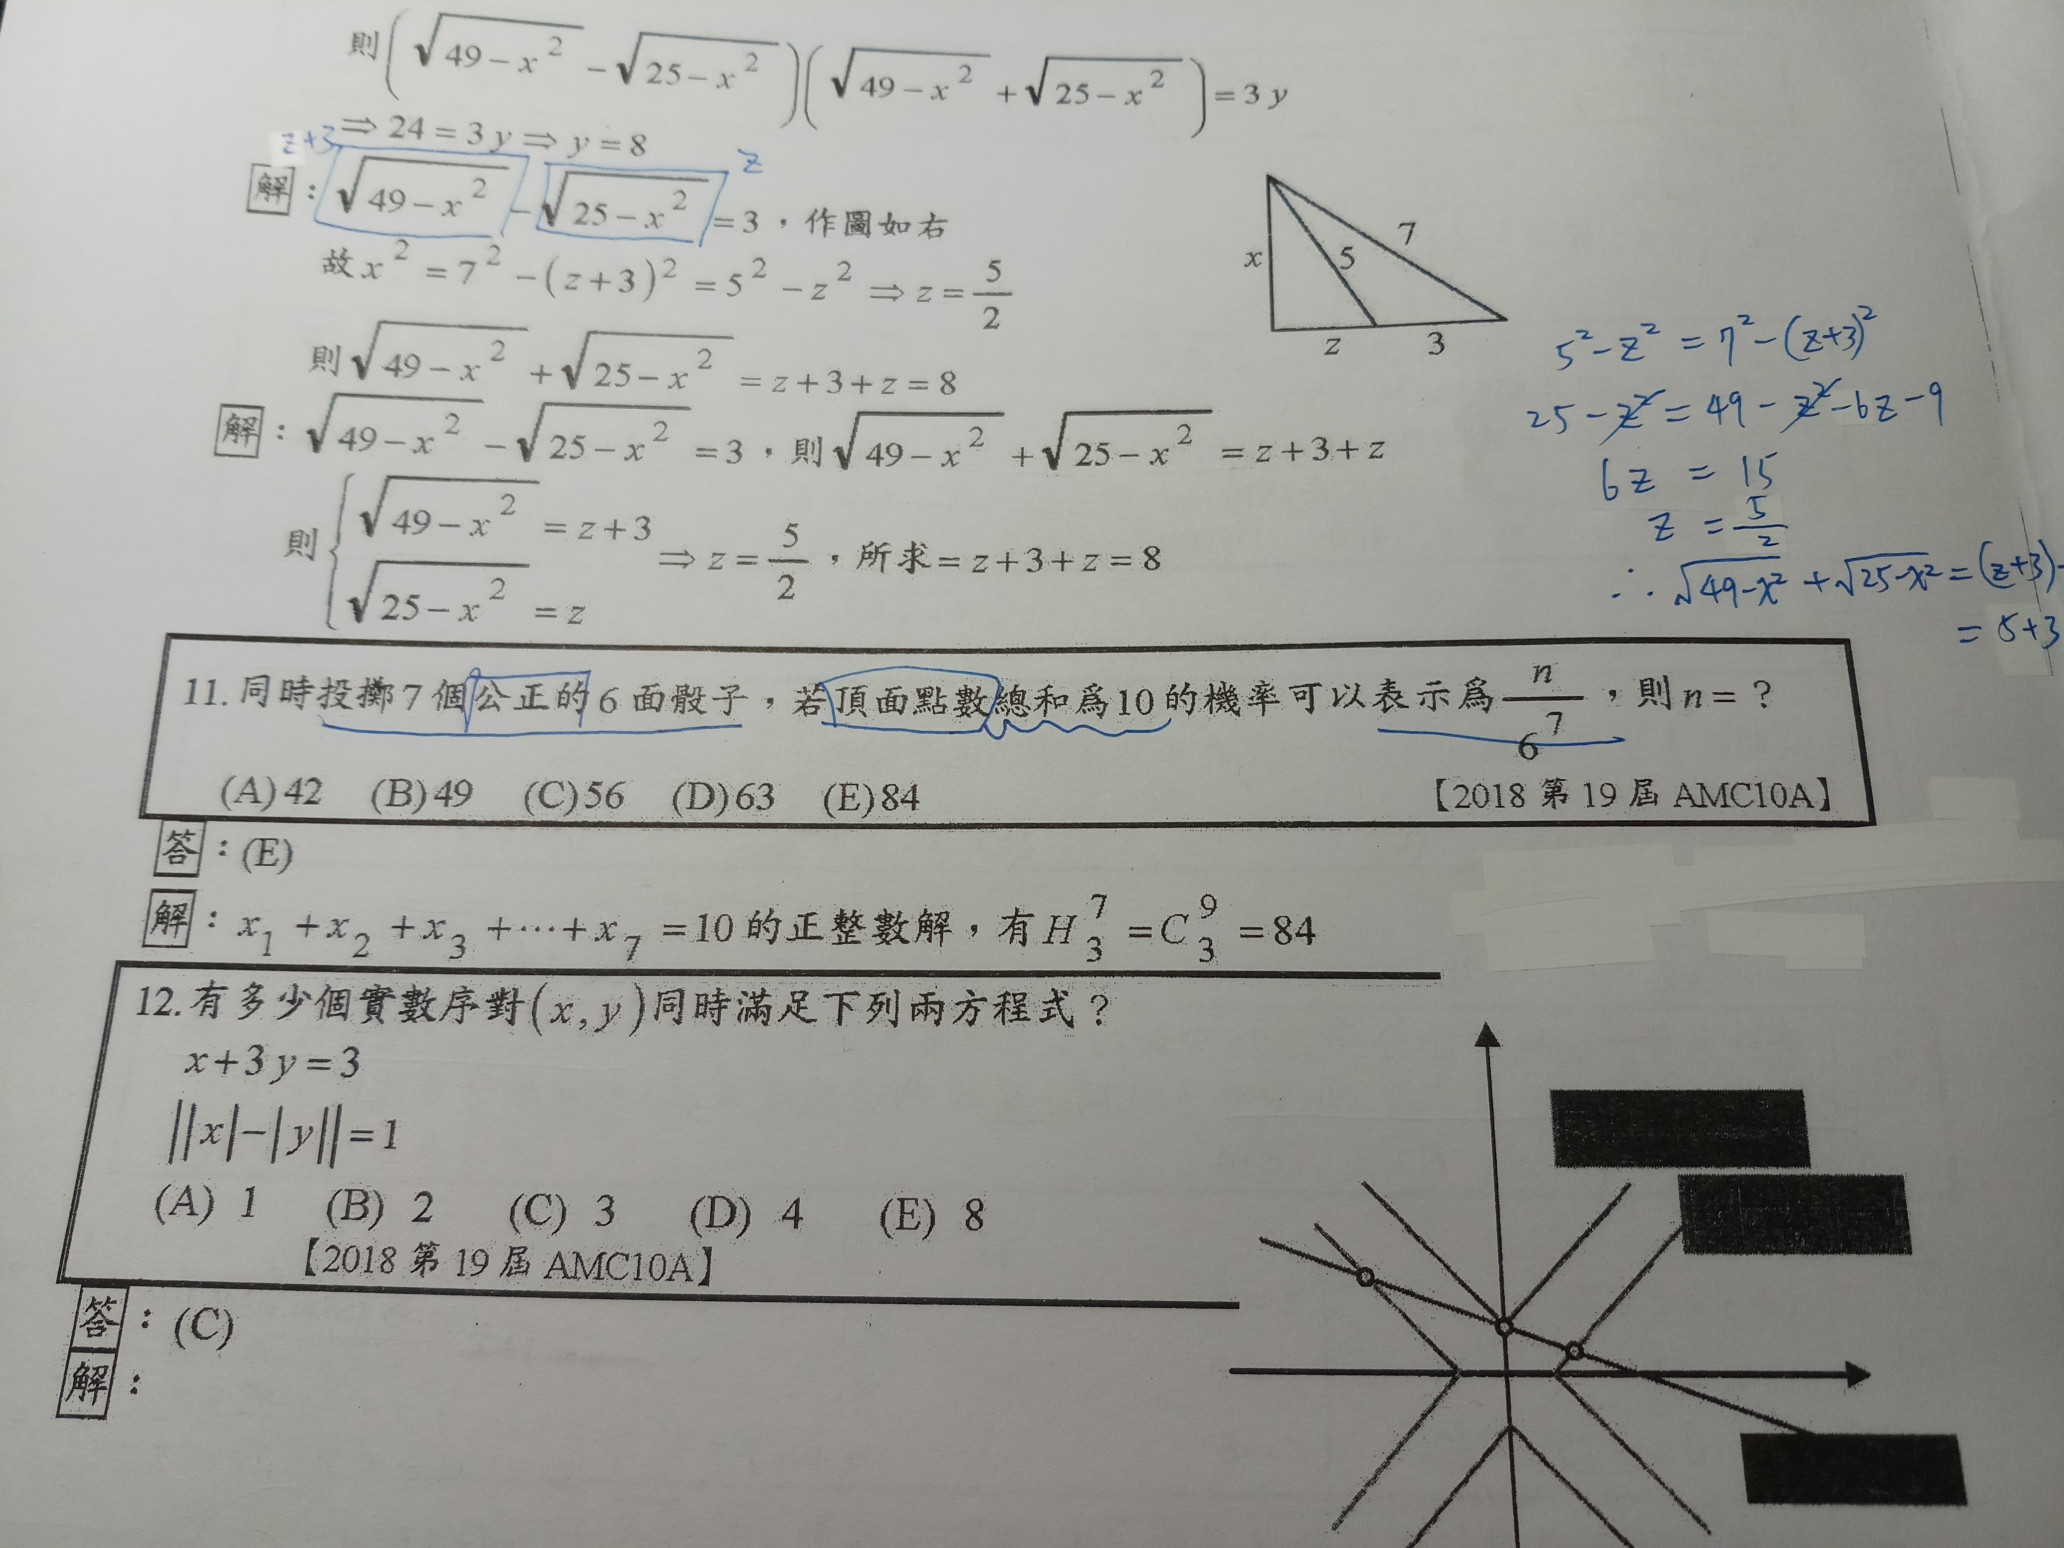 則(√(49-x²) - √(25-x²))(√(49-x²) + √(25-x²)) = 3y
⇒ 24 = 3y ⇒ y = 8
z+3
z
解：√(49-x²) - √(25-x²) = 3，作圖如右
故 x² = 7² - (z+3)² = 5² - z² ⇒ z = 5/2
則 √(49-x²) + √(25-x²) = z+3+z = 8
x 5 7
z 3
解：√(49-x²) - √(25-x²) = 3，則 √(49-x²) + √(25-x²) = z+3+z
則{ √(49-x²) = z+3
√(25-x²) = z
⇒ z = 5/2，所求 = z+3+z = 8
5² - z² = 7² - (z+3)²
25 - z² = 49 - z² - 6z - 9
6z = 15
z = 5/2
∴ √(49-x²) + √(25-x²) = (z+3)
= 5+3
11. 同時投擲7個公正的6面骰子，若頂面點數總和為10的機率可以表示為 n/6⁷，則n=？
(A)42 (B)49 (C)56 (D)63 (E)84
【2018 第 19 屆 AMC10A】
答：(E)
解：x₁+x₂+x₃+⋯+x₇=10的正整數解，有 H⁷₃ = C⁹₃ = 84
12.有多少個實數序對(x,y)同時滿足下列兩方程式？
x+3y=3
||x|-|y||=1
(A) 1 (B) 2 (C) 3 (D) 4 (E) 8
【2018 第 19 屆 AMC10A】
答：(C)
解：